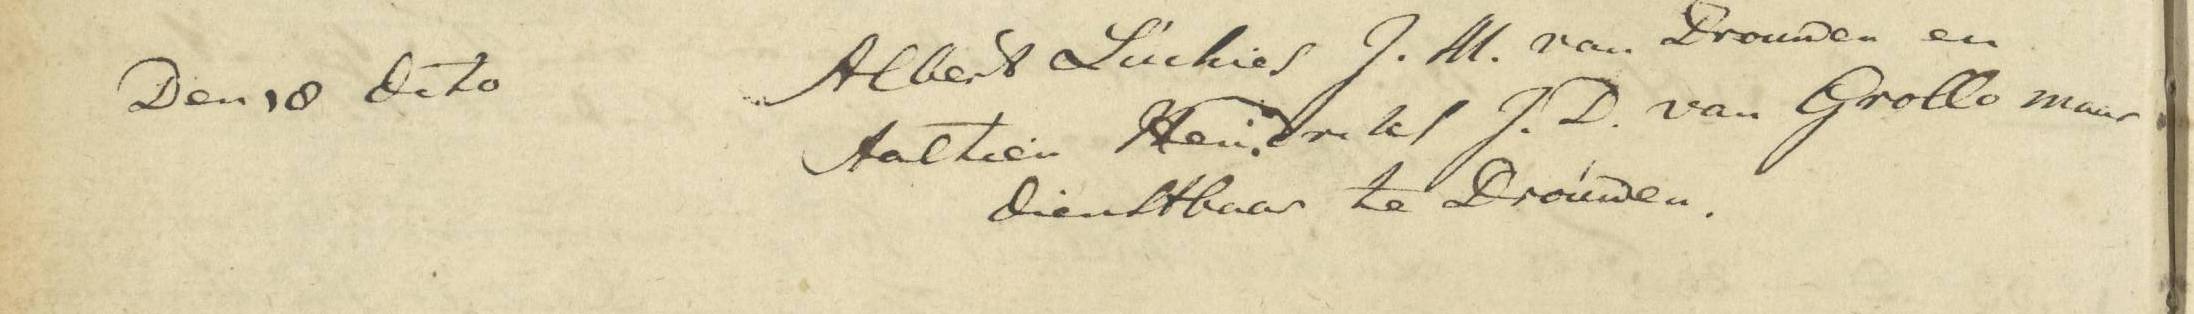 Den 18 dito Albert Luchies J. M. van Drouwen en
Aaltien Hendriks J. D. van Grollo maar
dienstbaar te Drouwen.